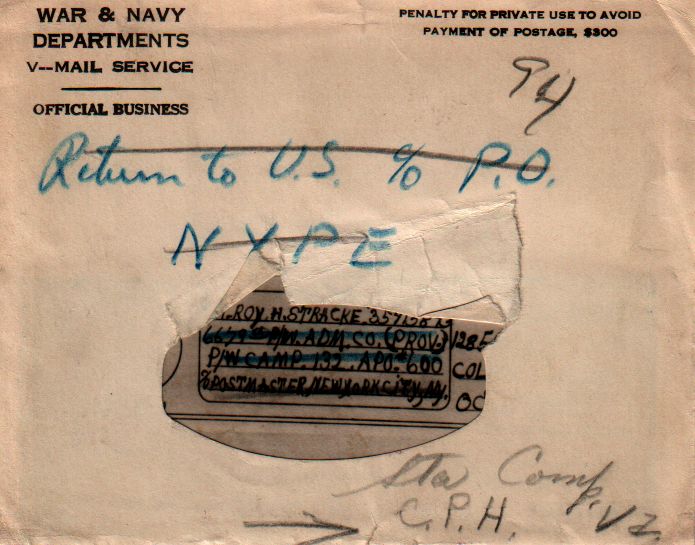 WAR & NAVY
DEPARTMENTS
V--MAIL SERVICE
OFFICIAL BUSINESS
PENALTY FOR PRIVATE USE TO AVOID
PAYMENT OF POSTAGE, $300
94
Return to U.S. % P.O.
NYPE
ROY. H. STRACKE
P/W. ADM. CO. (PROV.)
P/W CAMP. 132. APO. #600
% POSTMASTER, NEW YORK CITY, N.Y.
128 E
COL
OC
Sta Comp.
C.P.H.